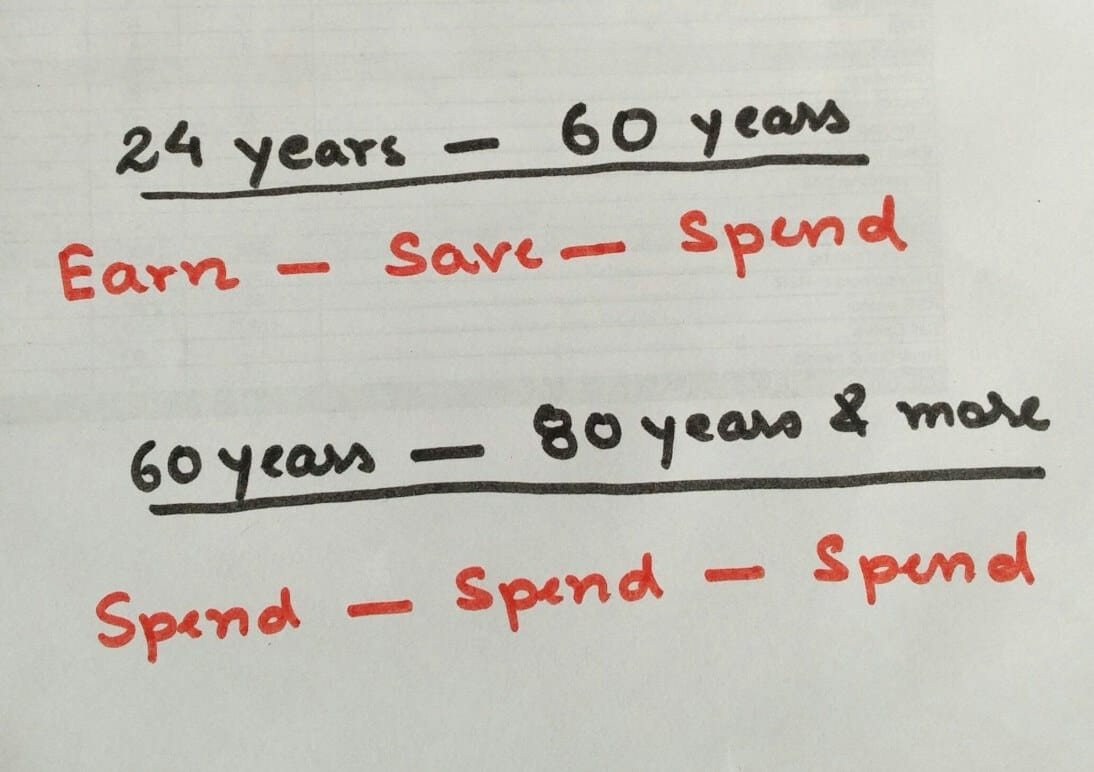 24 years - 60 years
Earn - Save - Spend
60 years - 80 years & more
Spend - Spend - Spend